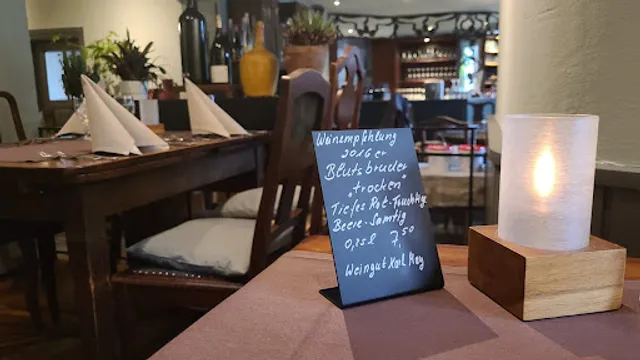 Weinempfehlung
2016er
Blutsbruder
"trocken"
Tiefes Rot-Fruchtige
Beere-Samtig
0,25l 7,50
Weingut Karl May